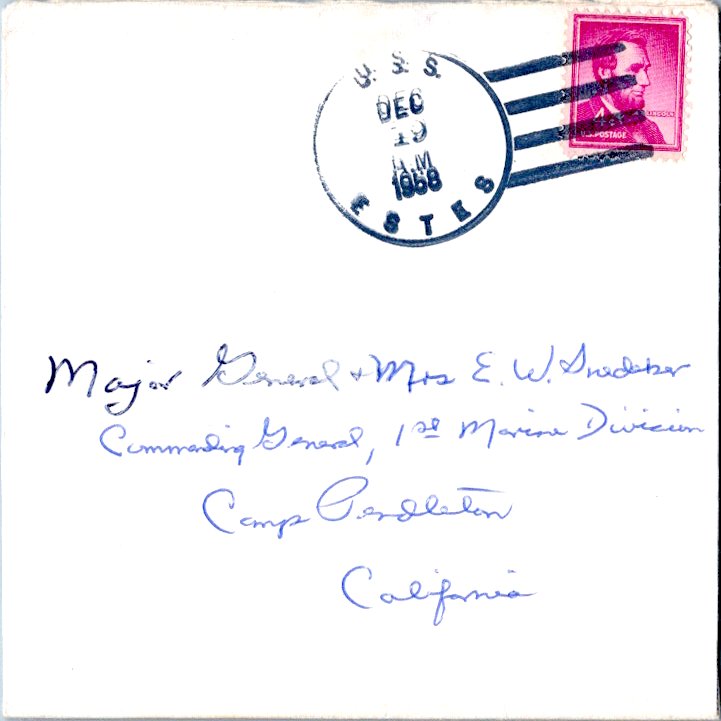 U.S.S.
DEC
19
A.M
1958
ESTES
4¢
LINCOLN
U.S. POSTAGE
Major General & Mrs E. W. Snedeker
Commanding General, 1st Marine Division
Camp Pendleton
California